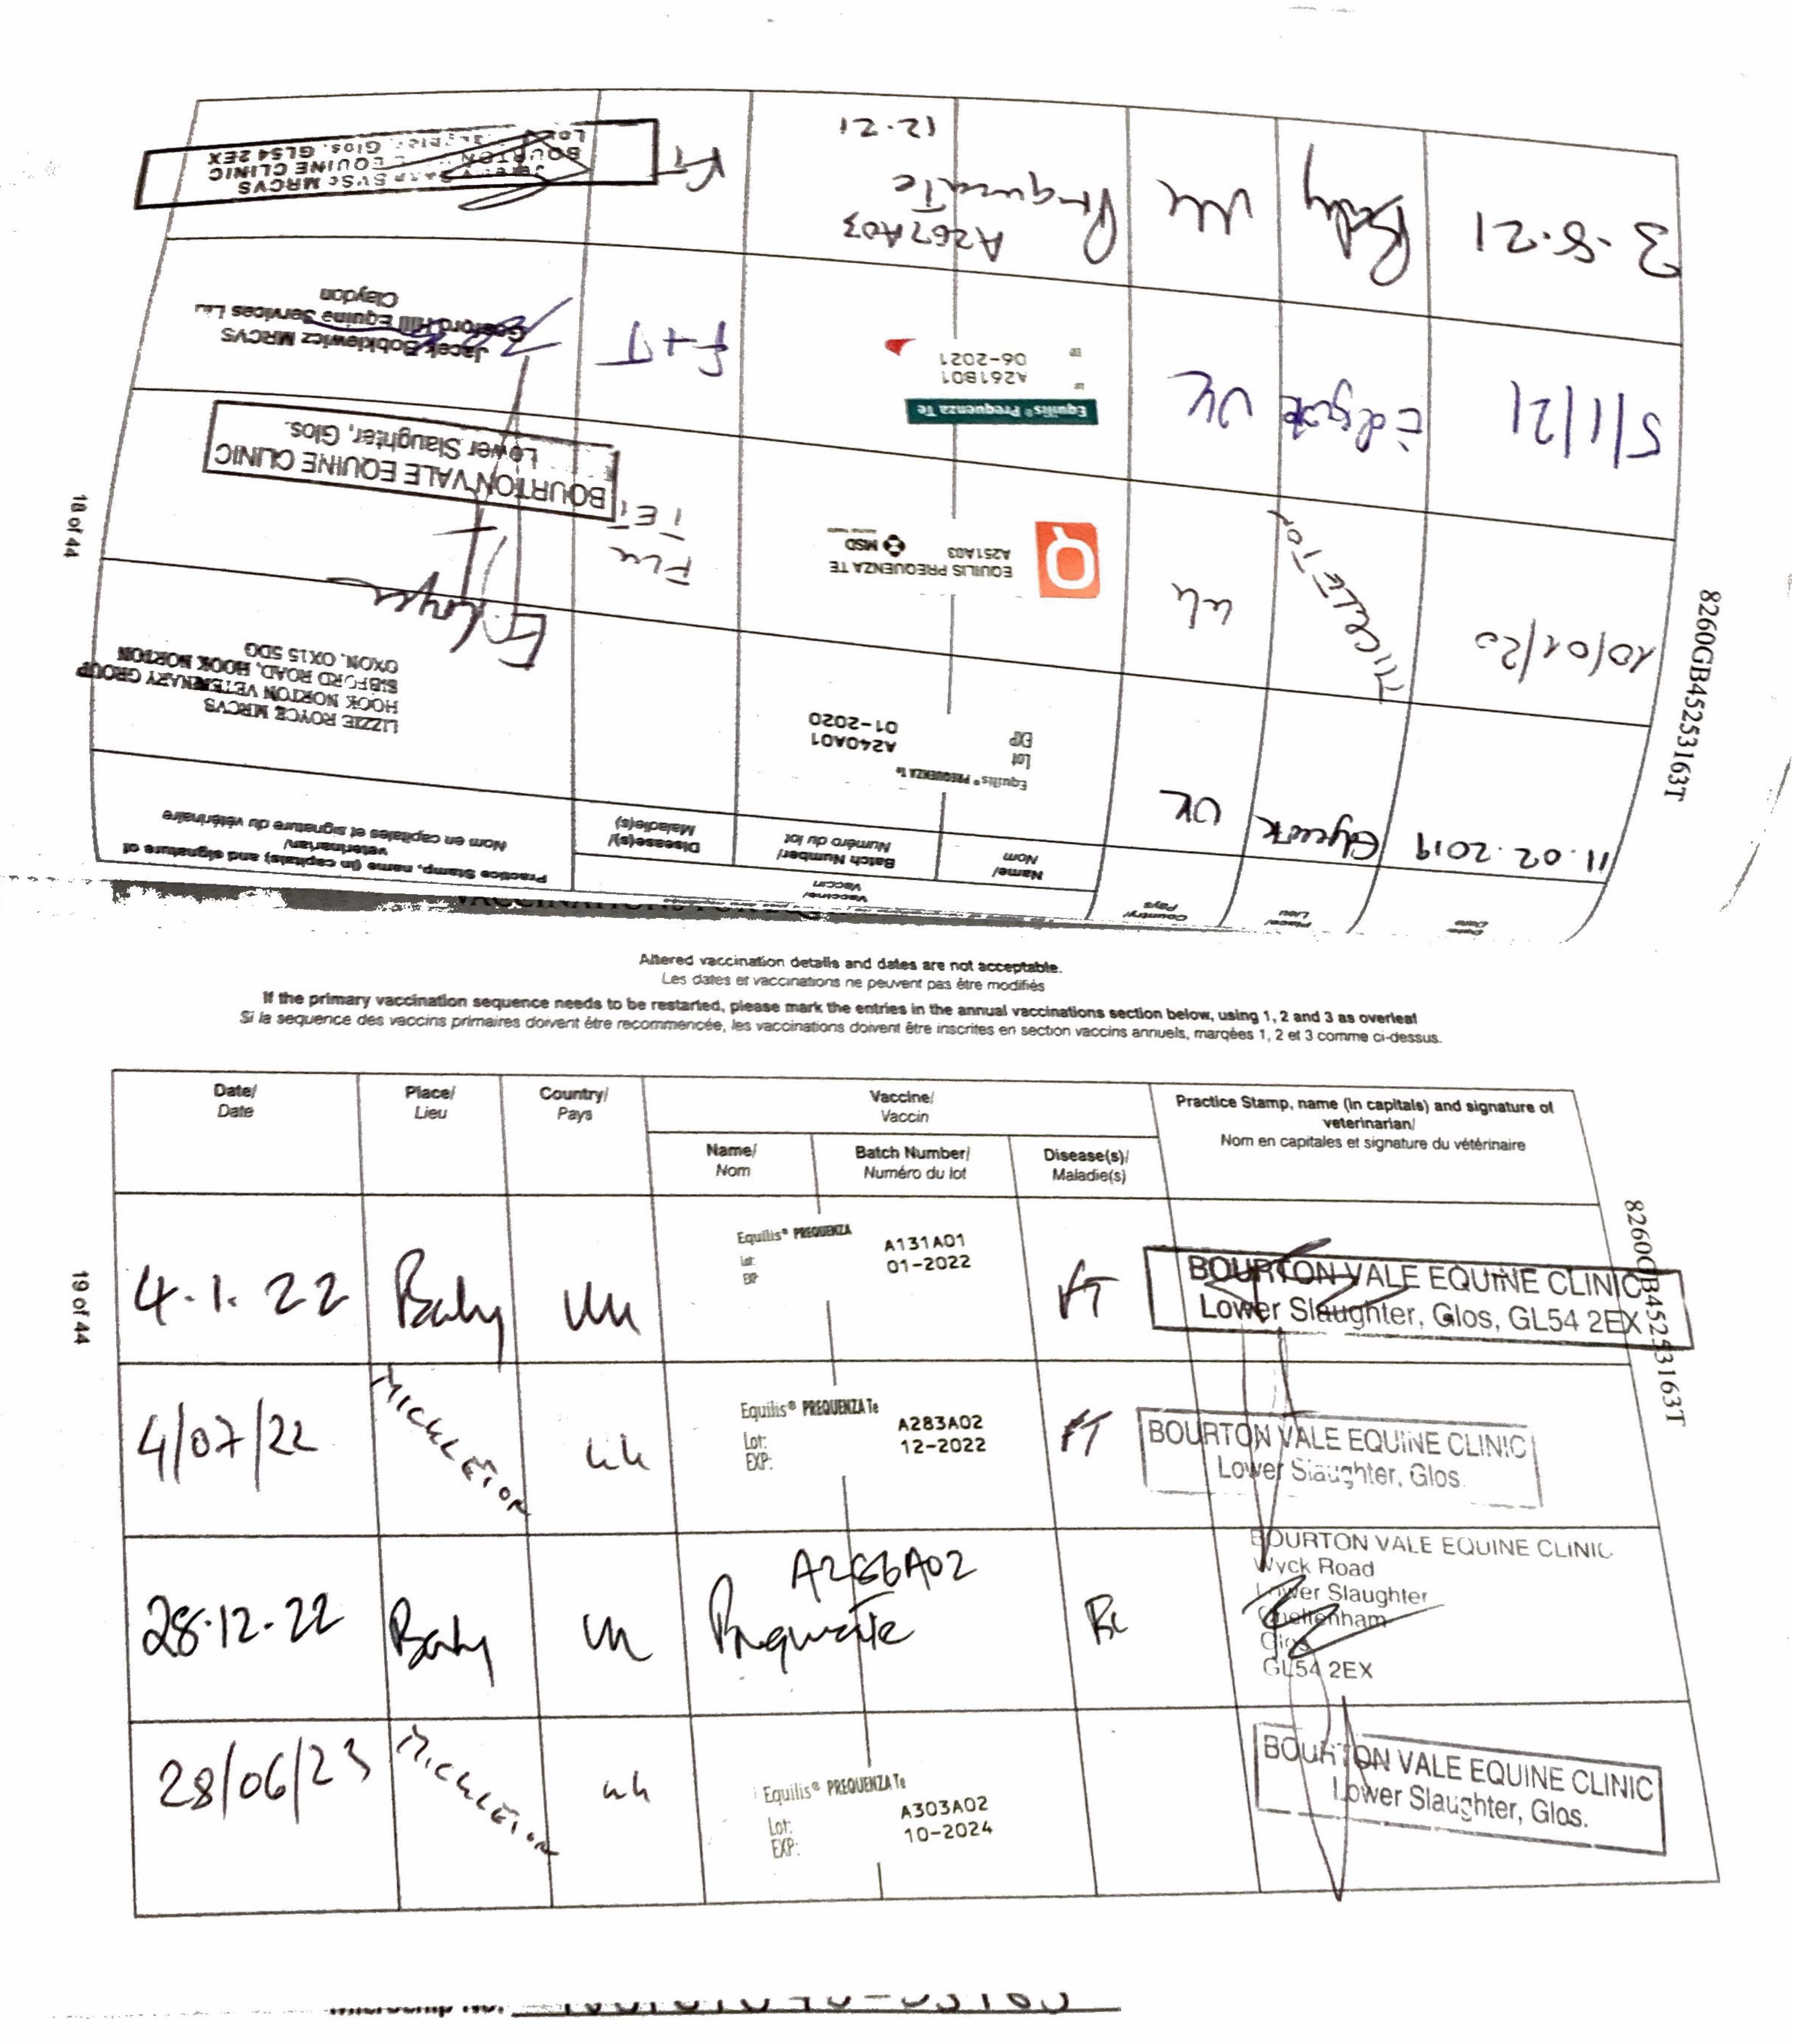 Date/
Date
Place/
Lieu
Country/
Pays
Vaccine/
Vaccin
Name/
Nom
Batch Number/
Numéro du lot
Disease(s)/
Maladie(s)
Practice Stamp, name (in capitals) and signature of
veterinarian/
Nom en capitales et signature du vétérinaire
11.02.2019
UK
Equilis® PREQUENZA Te
Lot A240A01
EXP 01-2020
LIZZIE ROYCE MRCVS
HOOK NORTON VETERINARY GROUP
SIBFORD ROAD, HOOK NORTON
OXON. OX15 5DG
10/01/20
MICKLETON
uk
EQUILIS PREQUENZA TE
A251A03
MSD
Flu
TET
BOURTON VALE EQUINE CLINIC
Lower Slaughter, Glos.
5/1/21
UK
Equilis® Prequenza Te
A261B01
06-2021
F+T
Jacek Bobkiewicz MRCVS
Gosford Hill Equine Services Ltd
Claydon
3.8.21
UK
A267A03
Prequenza Te
12.21
FT
MRCVS
BOURTON EQUINE CLINIC
Glos. GL54 2EX
18 of 44
8260GB45253163T
Altered vaccination details and dates are not acceptable.
Les dates et vaccinations ne peuvent pas être modifiés
If the primary vaccination sequence needs to be restarted, please mark the entries in the annual vaccinations section below, using 1, 2 and 3 as overleaf
Si la sequence des vaccins primaires doivent être recommencée, les vaccinations doivent être inscrites en section vaccins annuels, marqées 1, 2 et 3 comme ci-dessus.
Date/
Date
Place/
Lieu
Country/
Pays
Vaccine/
Vaccin
Name/
Nom
Batch Number/
Numéro du lot
Disease(s)/
Maladie(s)
Practice Stamp, name (in capitals) and signature of
veterinarian/
Nom en capitales et signature du vétérinaire
4.1.22
UK
Equilis® PREQUENZA
Lot: A131A01
EXP 01-2022
FT
BOURTON VALE EQUINE CLINIC
Lower Slaughter, Glos, GL54 2EX
4/07/22
MICKLETON
uk
Equilis® PREQUENZA Te
Lot: A283A02
EXP: 12-2022
FT
BOURTON VALE EQUINE CLINIC
Lower Slaughter, Glos.
28.12.22
UK
A286A02
BOURTON VALE EQUINE CLINIC
Wyck Road
Lower Slaughter
Cheltenham
Glos
GL54 2EX
28/06/23
MICKLETON
uk
Equilis® PREQUENZA Te
Lot: A303A02
EXP: 10-2024
BOURTON VALE EQUINE CLINIC
Lower Slaughter, Glos.
19 of 44
8260GB45253163T